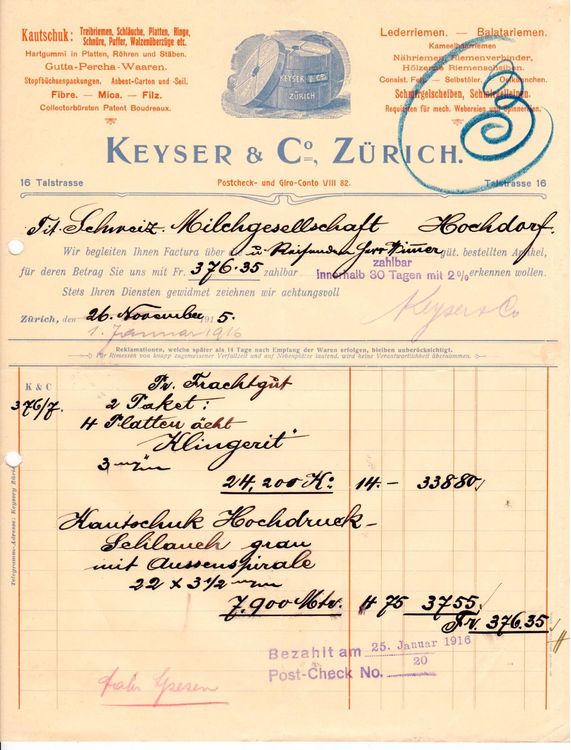 Kautschuk: Treibriemen, Schläuche, Platten, Ringe,
Schnüre, Puffer, Walzenüberzüge etc.
Hartgummi in Platten, Röhren und Stäben.
Gutta-Percha-Waaren.
Stopfbüchsenpackungen. Asbest-Carton und -Seil.
Fibre. — Mica. — Filz.
Collectorbürsten Patent Boudreaux.
KEYSER & Co.
ZÜRICH
Lederriemen. — Balatariemen.
Kameelhaarriemen
Nähriemen, Riemenverbinder,
Hölzerne Riemenscheiben.
Consist. Fett. — Selbstöler.
Schmirgelscheiben, Schmirgelleinen.
Requisiten für mech. Webereien und Spinnereien.
KEYSER & Co., ZÜRICH.
16 Talstrasse
Postcheck- und Giro-Conto VIII 82.
Talstrasse 16
Tit. Schweiz. Milchgesellschaft Hochdorf.
Wir begleiten Ihnen Factura über die u. Reisenden Herr güt. bestellten Artikel,
für deren Betrag Sie uns mit Fr. 376.35 zahlbar zahlbar
innerhalb 30 Tagen mit 2% erkennen wollen.
Stets Ihren Diensten gewidmet zeichnen wir achtungsvoll
Keyser & Co
Zürich, den 26. November 1915.
1. Januar 1916
Reklamationen, welche später als 14 Tage nach Empfang der Waren erfolgen, bleiben unberücksichtigt.
Für Rimessen von knapp zugemessener Verfallzeit und auf Nebenplätze lautend, wird keine Verantwortlichkeit übernommen.
K & C Pr. Frachtgut
376/7. 2 Paket:
4 Platten ächt
"Klingerit"
3 m/m
24,200 Ko 14.— 338 80
Kautschuk Hochdruck-
Schlauch grau
mit Aussenspirale
22 x 3½ m/m
7.900 Mtr. 4 75 37 55
Fr. 376.35
Bezahlt am 25. Januar 1916
Post-Check No. 20
Telegramm-Adresse: Keysery Zürich